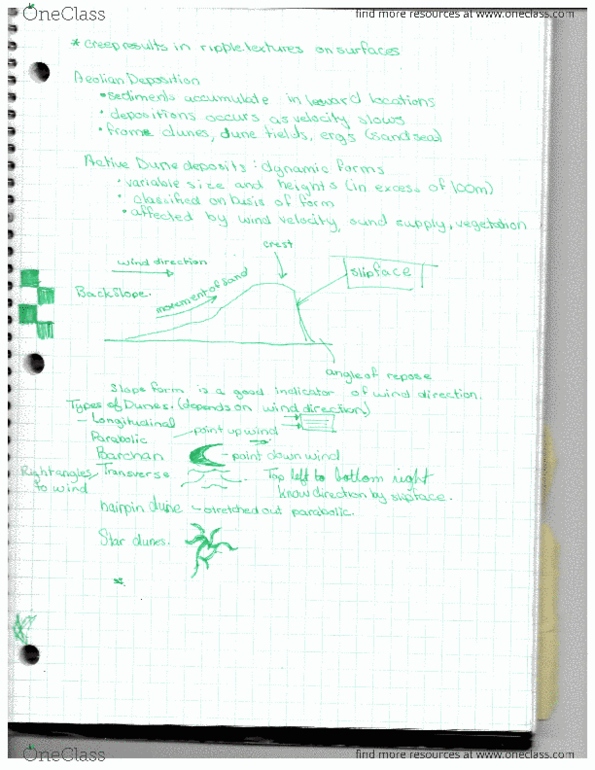 OneClass
find more resources at www.oneclass.com
* creep results in ripple textures on surfaces
Aeolian Deposition
• sediments accumulate in leeward locations
• depositions occurs as velocity slows
• from dunes, dune fields, ergs (sand sea)
Active Dune deposits : dynamic forms
• variable size and heights (in excess of 100m)
• classified on basis of form
• affected by wind velocity, sand supply, vegetation
crest
wind direction
slipface
Backslope.
movement of sand
angle of repose
Slope form is a good indicator of wind direction.
Types of Dunes: (depends on wind direction)
- Longitudinal
Parabolic - point up wind
Barchan - point down wind
Right angles to wind
Transverse
Top left to bottom right
know direction by slipface.
hairpin dune - stretched out parabolic.
Star dunes.
*
OneClass
find more resources at www.oneclass.com